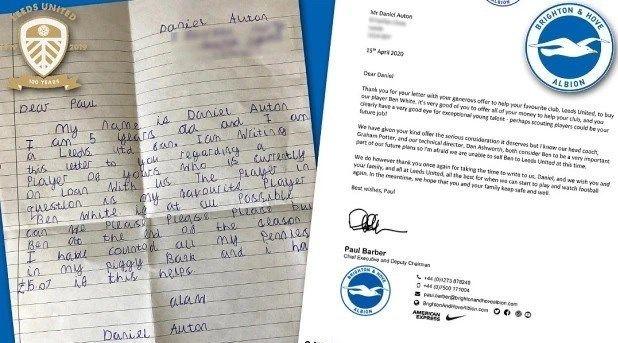 LEEDS UNITED
100 YEARS
Daniel Auton
Dear Paul
My name is Daniel Auton
I am 5 years old and I am
a Leeds utd fan. I am Writing
this letter to you regarding a
Player of yours who is currently
on Loan With us The Player in
question is my favourite Player
Ben White is at all Possible
can we Please Please Please buy
Ben at the end of the season
I have counted all my Pennies
in my Piggy Bank and i have
£5.07 if this helps
Daniel Auton
Mr Daniel Auton
15th April 2020
Dear Daniel
Thank you for your letter with your generous offer to help your favourite club, Leeds United, to buy
our player Ben White. It's very good of you to offer all of your money to help your club, and you
clearly have a very good eye for exceptional young talent - perhaps scouting players could be your
future job!
We have given your kind offer the serious consideration it deserves but I know our head coach,
Graham Potter, and our technical director, Dan Ashworth, both consider Ben to be a very important
part of our future plans so I'm afraid we are unable to sell Ben to Leeds United at this time.
We do however thank you once again for taking the time to write to us, Daniel, and we wish you and
your family, and all at Leeds United, all the best for when we can start to play and watch football
again. In the meantime, we hope that you and your family keep safe and well.
Best wishes, Paul
Paul Barber
Chief Executive and Deputy Chairman
+44 (0)1273 878248
paul.barber@brightonandhovealbion.com
BrightonAndHoveAlbion.com
AMERICAN EXPRESS
BRIGHTON & HOVE
ALBION
BRIGHTON & HOVE
ALBION